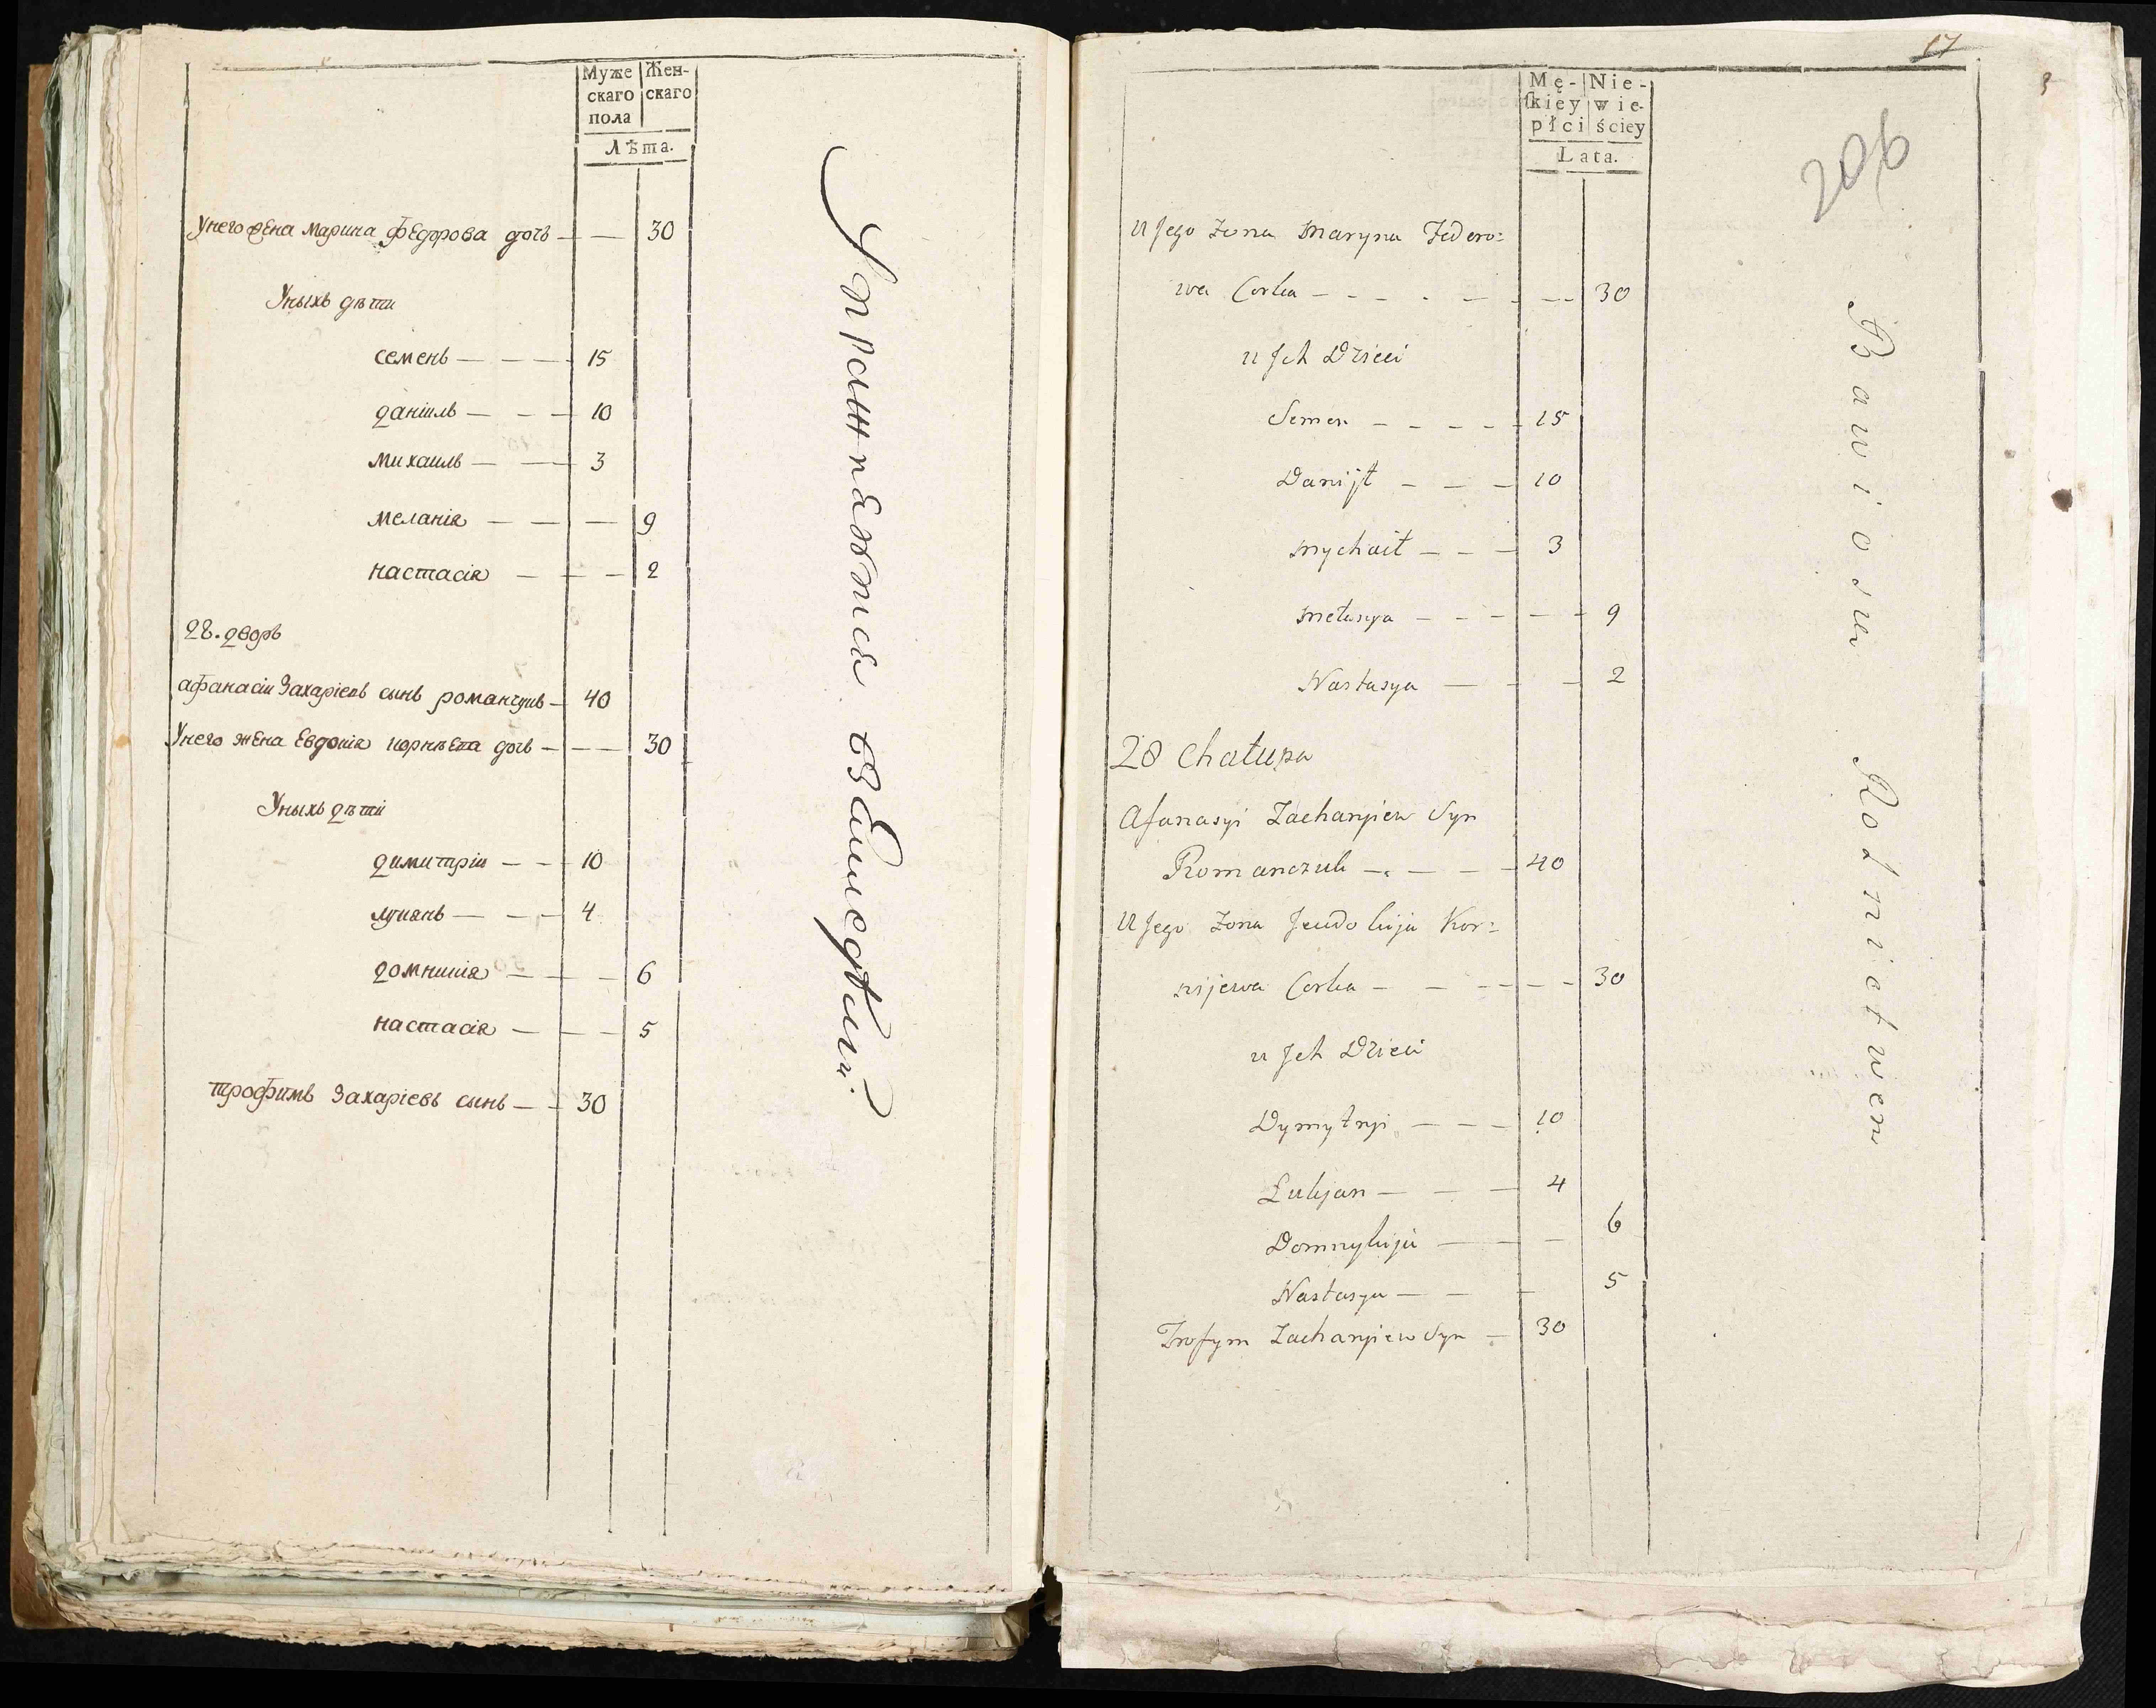 Муже
скаго
пола
Жен-
скаго
Лѣта.
Унего жена марина федорова дочь — — 30
Уныхъ дѣти
семенъ — — — 15
данiилъ — — — 10
михаилъ — — 3
меланiя — — — 9
настасiя — — — 2
28. дворъ
афанасiи Захарiевъ сынъ романчукъ — 40
Унего жена Евдокiя корнѣева дочь — — — 30
Уныхъ дѣтiи
димитрiи — — 10
лукiянъ — — 4
домникiя — — — 6
настасiя — — — 5
трофимъ Захарiевъ сынъ — — 30
Упражняются
17
206
Mę-
skiey
płci
Nie-
wie-
ściey
Lata.
U Jego Zona Maryna Fedoro=
wa Corka — — — — — — 30
u Jch Dzieci
Semen — — — — 15
Danijł — — — 10
Mychaił — — — 3
Mełanya — — — — — 9
Nastasya — — — 2
28 Chałupa
Afanasyi Zacharyiew Syn
Romanczuk — — — — 40
U Jego Zona Jewdokija Kor=
nijewa Corka — — — — — 30
u Jch Dzieci
Dymytryi — — — 10
Łukjan — — — 4
Domnykija — — — 6
Nastasya — — — 5
Trofym Zacharyiew Syn — 30
Bawiosie Rolnictwem